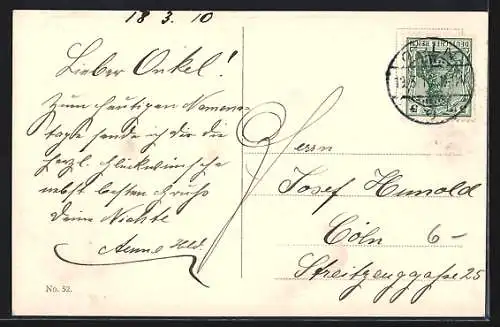 18 3. 10
Lieber Onkel!
Zum heutigen Namens-
tage sende ich dir die
herzl. Glückwünsche
nebst besten Gruß
Deine Nichte
Aenne
No. 52.
DEUTSCHES REICH
Herrn
Josef Hunold
Cöln 6-
Streitzeuggasse 25